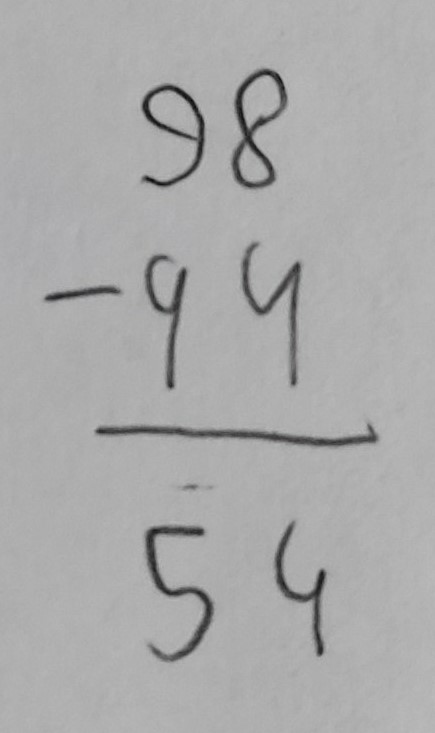 98
-44
54